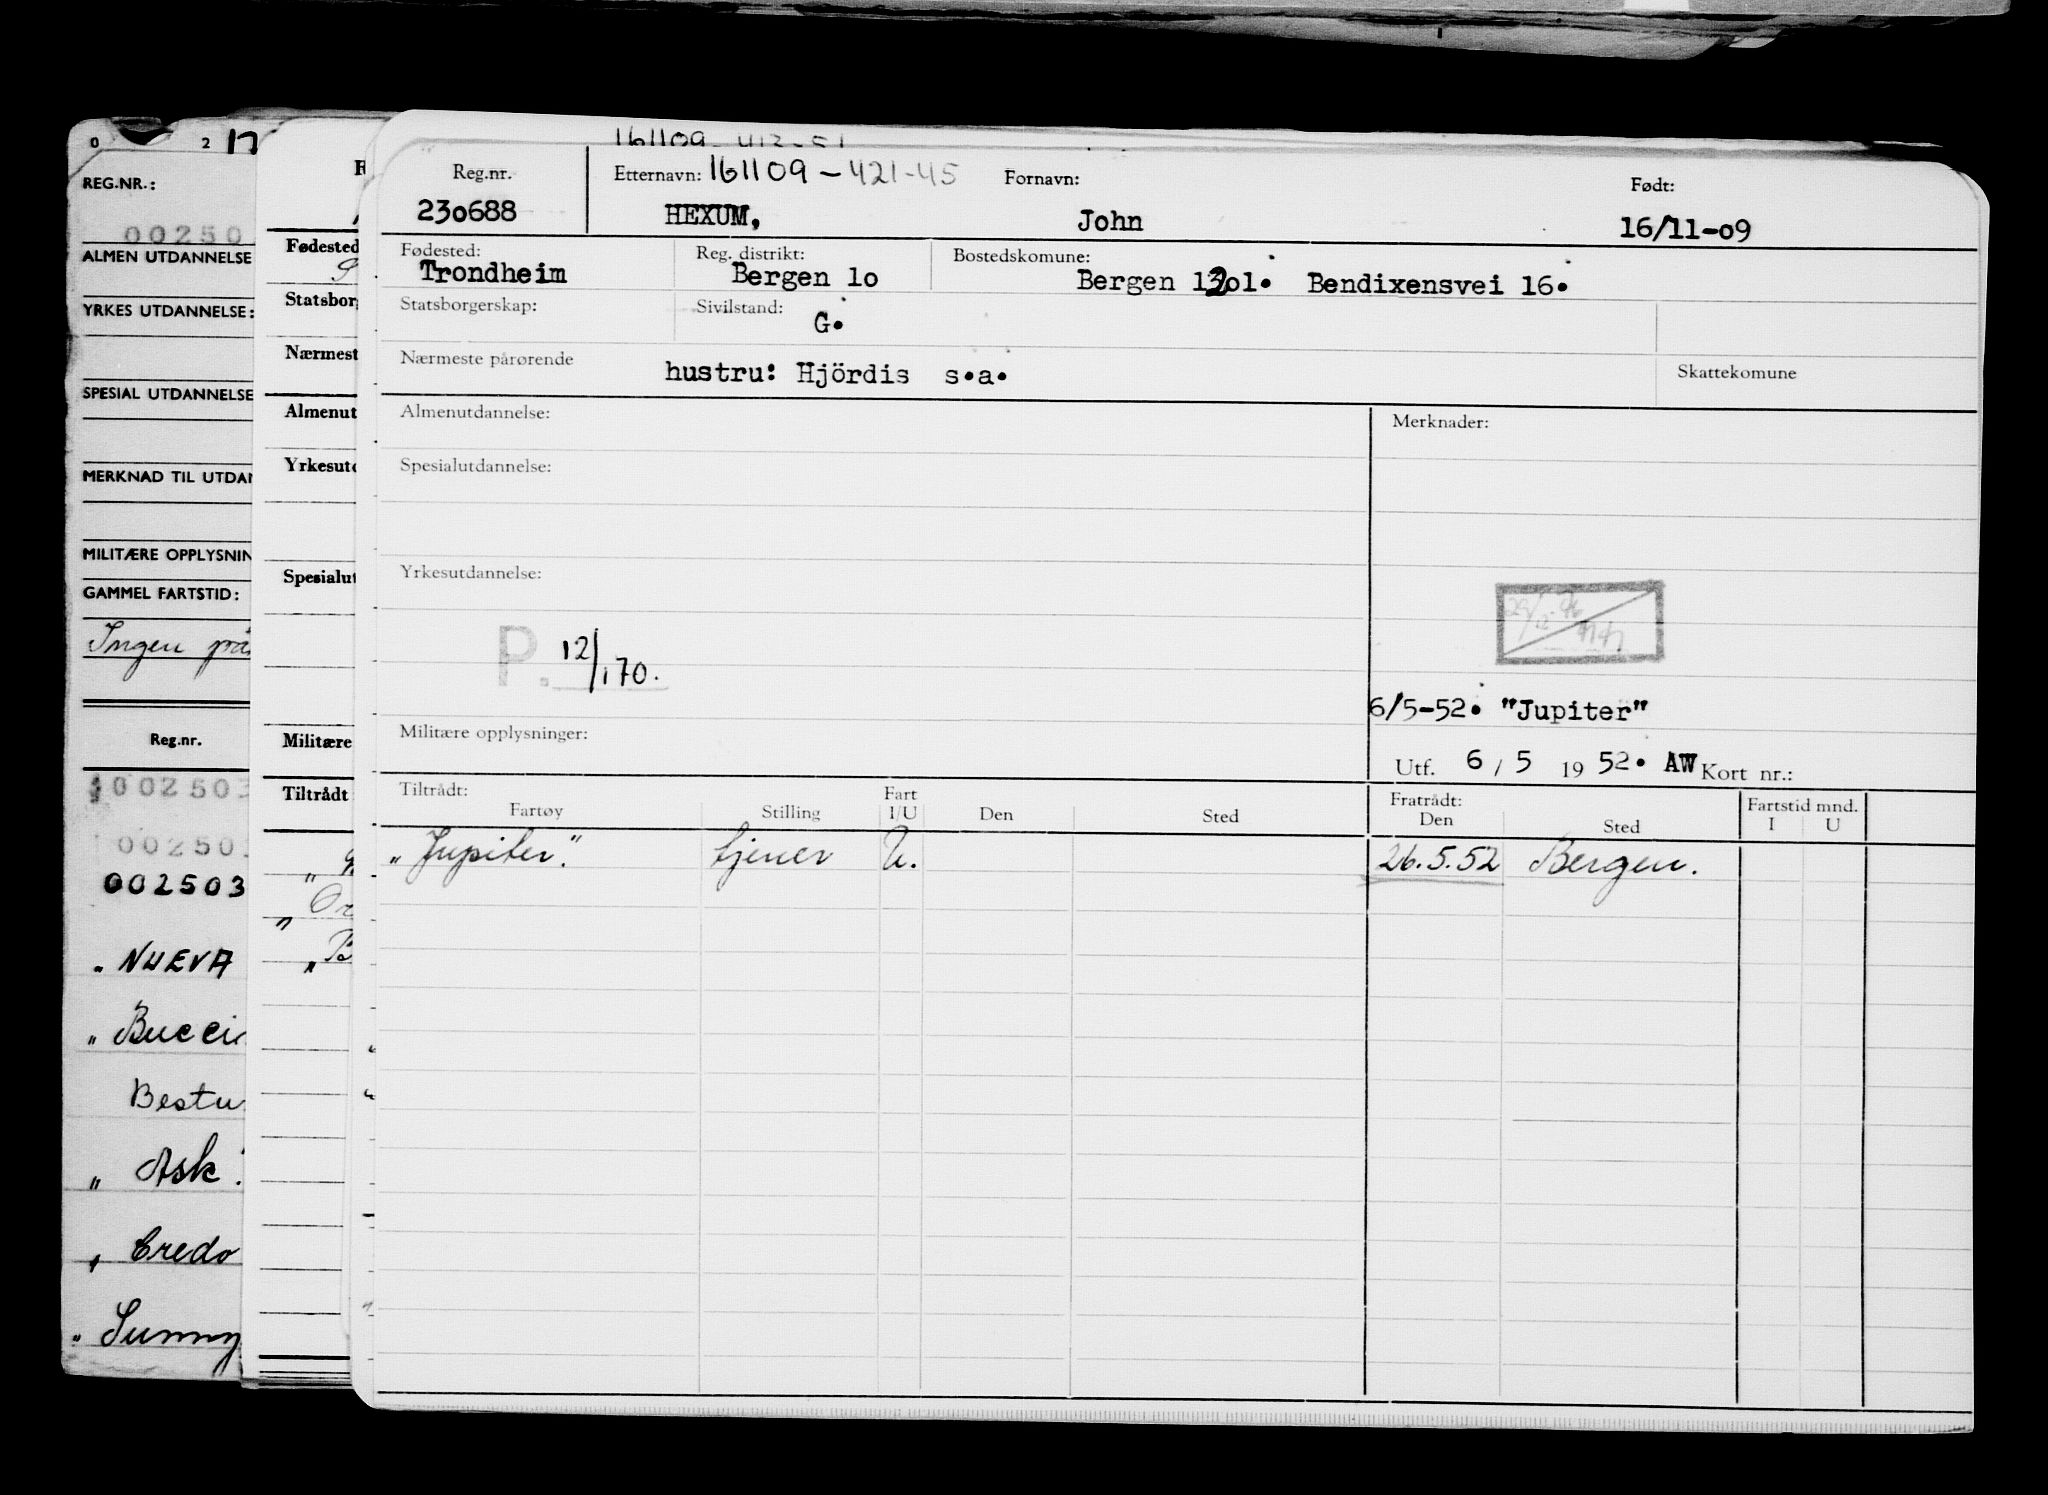 161109-
Reg.nr.
Etternavn: 161109-421-45
Fornavn:
Født:
230688
HEXUM,
John
16/11-09
Fødested:
Reg. distrikt:
Bostedskomune:
Trondheim
Bergen 10
Bergen 1301. Bendixensvei 16.
Statsborgerskap:
Sivilstand:
G.
Nærmeste pårørende
hustru: Hjördis s.a.
Skattekomune
Almenutdannelse:
Merknader:
Spesialutdannelse:
Yrkesutdannelse:
P. 12/1 70.
6/5-52. "Jupiter"
Militære opplysninger:
Utf. 6 / 5 19 52. AW Kort nr.:
Tiltrådt:
Fartøy
Stilling
Fart
I/U
Den
Sted
Fratrådt:
Den
Sted
Fartstid mnd.
I
U
„Jupiter."
tjener
U.
26.5.52
Bergen.
0 2 17
REG.NR.:
00250
ALMEN UTDANNELSE
YRKES UTDANNELSE:
SPESIAL UTDANNELSE
MERKNAD TIL UTDAN
MILITÆRE OPPLYSNIN
GAMMEL FARTSTID:
Ingen
Reg.nr.
002503
00250
002503
„ NUEVA
„ Bucci
Bestu
„ Ask"
„ Credo
„ Sunny
F
Fødested
S
Statsborg
Nærmest
Almenut
Yrkesutd
Spesialut
Militære
Tiltrådt
„ Or
„ B